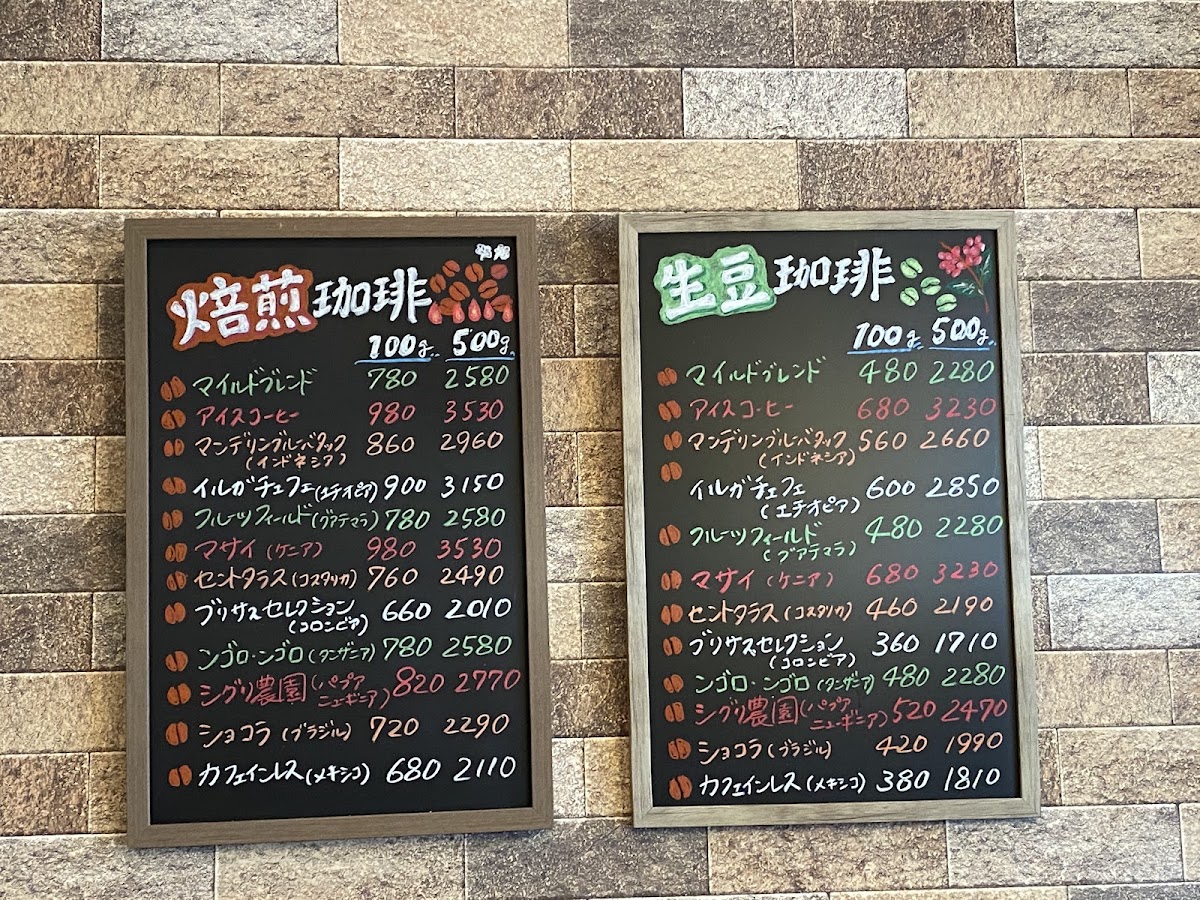 焙煎珈琲
100g 500g
マイルドブレンド 780 2580
アイスコーヒー 980 3530
マンデリンブルーバタック 860 2960
(インドネシア)
イルガチェフェ(エチオピア) 900 3150
フルーツフィールド(グアテマラ) 780 2580
マサイ(ケニア) 980 3530
セントタラス(コスタリカ) 760 2490
ブリサスセレクション 660 2010
(コロンビア)
ンゴロ・ンゴロ(タンザニア) 780 2580
シグリ農園(パプア 820 2770
ニューギニア)
ショコラ(ブラジル) 720 2290
カフェインレス(メキシコ) 680 2110
生豆珈琲
100g 500g
マイルドブレンド 480 2280
アイスコーヒー 680 3230
マンデリンブルーバタック 560 2660
(インドネシア)
イルガチェフェ 600 2850
(エチオピア)
フルーツフィールド 480 2280
(グアテマラ)
マサイ(ケニア) 680 3230
セントタラス(コスタリカ) 460 2190
ブリサスセレクション 360 1710
(コロンビア)
ンゴロ・ンゴロ(タンザニア) 480 2280
シグリ農園(パプア 520 2470
ニューギニア)
ショコラ(ブラジル) 420 1990
カフェインレス(メキシコ) 380 1810